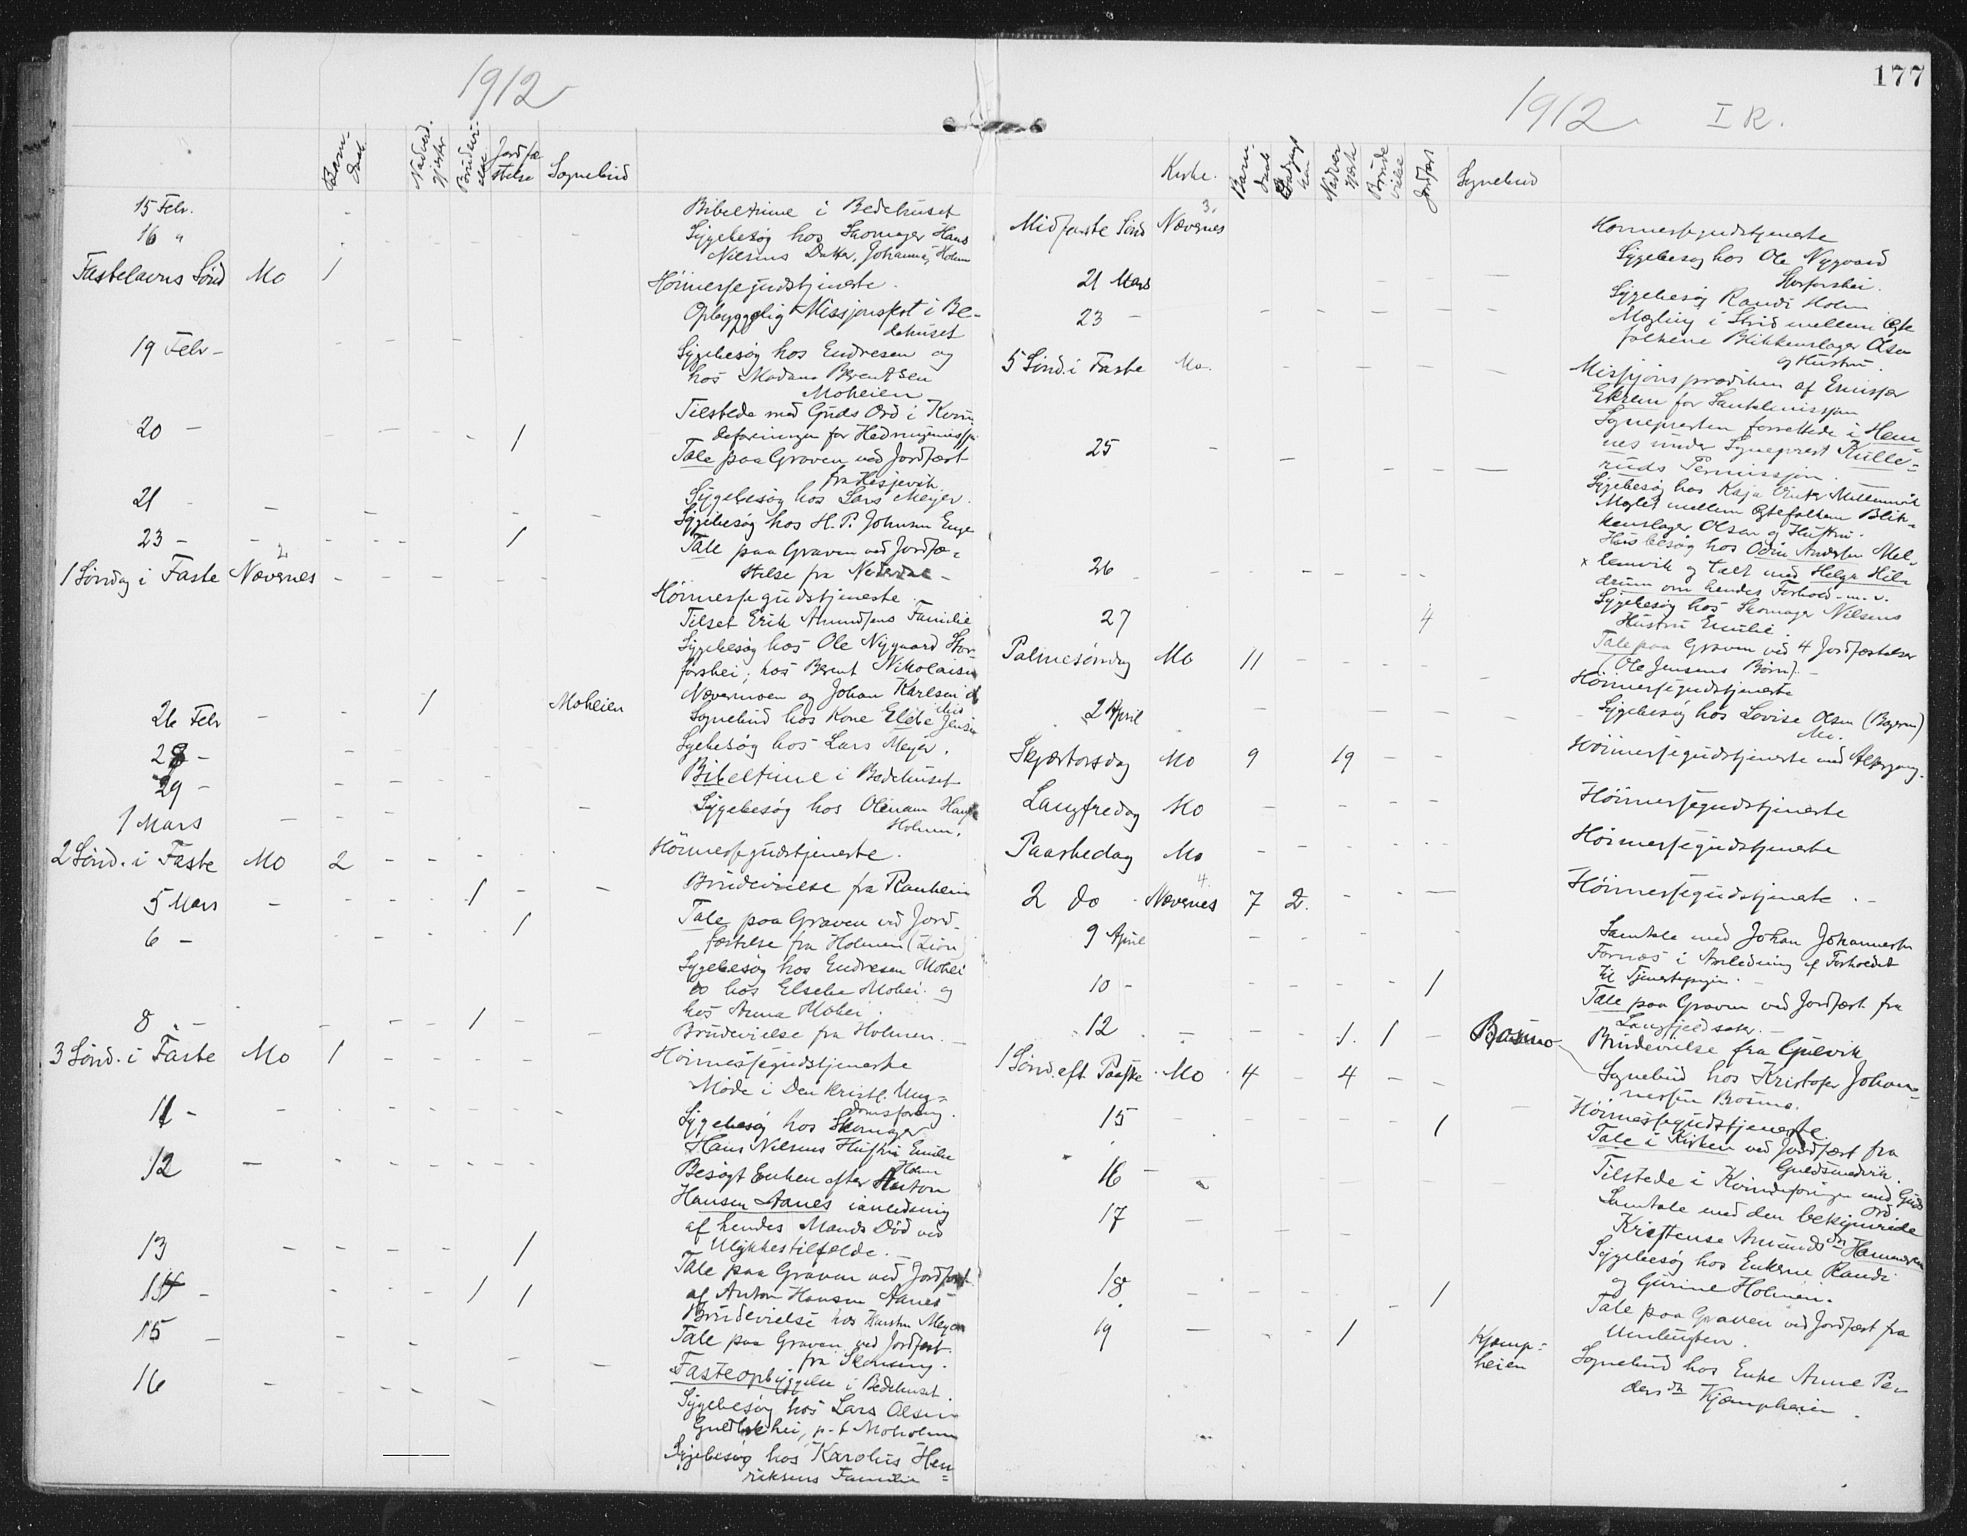 1912
Barn-
daab
Nadverd.
gjester
Brudevi-
else
Jordfæ-
stelse
Sognebud
15 Febr.
Bibeltime i Bedehuset
16 "
Sygebesøg hos Skomager Hans
Nilsens Datter, Johanna, Holmen
Fastelavns Sønd Mo 1
Høimessegudstjeneste.
Opbyggelig Missjonskot i Be-
dehuset
19 Febr -
Sygebesøg hos Endresen og
hos Madam Berentsen
Moheien
20 - 1
Tilstede med Guds Ord i Kvin-
deforeningen for Hedningemissj.
Tale paa Graven ved Jordfæst
fra Hesjevik.
21 -
Sygebesøg hos Lars Meyer.
Sygebesøg hos H. P. Johnsen Enge
23 - 1
Tale paa Graven ved Jordfæ-
stelse fra Nederdal -
1 Søndag i Faste Nævernes 2
Høimessegudstjeneste.
Tilset Erik Amundsens Familie
Sygebesøg hos Ole Nygaard Stor-
forshei; hos Bernt Nikolaisen
Nævermoen og Johan Karlsen
26 Febr 1 Moheien
Sognebud hos Kone Jensen
28 -
Sygebesøg hos Lars Meyer.
29 -
Bibeltime i Bedehuset
1 Mars
Sygebesøg hos Hans
Holmen.
2 Sønd. i Faste Mo 2
Høimessegudstjeneste.
5 Mars 1
Brudevielse fra Ranheim
6 - 1
Tale paa Graven ved Jord-
fæstelse fra Holmen (Zion)
Sygebesøg hos Endresen Mohei
do hos Elsebe Mohei og
hos Anna Mohei.
8 - 1
Brudevielse fra Holmen. -
3 Sønd. i Faste Mo 1
Høimessegudstjeneste
Møde i Den kristl. Ung-
domsforening.
11 -
Sygebesøg hos Skomager
Hans Nilsens Hustru Emilie
Holm
12 -
Besøgt Enken efter Anton
Hansen Aanes i anledning
af hendes Mands Død ved
Ulykkestilfælde. -
13 1
Tale paa Graven ved Jordfæst
af Anton Hansen Aanes
14 - 1 1
Brudevielse hos Karsten Meyer
Tale paa Graven ved Jordfæst
fra
15 -
Fasteopbyggelse i Bedehuset.
16
Sygebesøg hos Lars Olsen
p. t Moholmen
Sygebesøg hos Karolus Hen-
riksens Familie -
177
1912 I R.
Kirke.
Barn-
daab
Nadver
gjeste
Brude
vielse
Jordfæst
Sognebud
Midfaste Sønd Nævernes 3.
Høimessegudstjeneste
21 Mars
Sygebesøg hos Ole Nygaard
Storforshei.
23 -
Sygebesøg Randi Holm
Mægling i Strid mellem Ægte
folkene Blikkenslager Olsen
og Hustru.
5 Sønd. i Faste Mo.
Missjonsprædiken af Emissær
Ekrem for Santalmissjon
25
Sognepresten forrettede i Hem-
nes under Sogneprest Kulle-
ruds Permissjon.
Sygebesøg hos Kaja Mellemvik
Meglet mellem Ægtefolkene Blik-
kenslager Olsen og Hustru.
26
Husbesøg hos Odin Andersen Mel-
x lemvik og talt med Helga Hil-
drum om hendes Forhold - m. v.
27 4
Sygebesøg hos Skomager Nilsens
Hustru Emilie.
Tale paa Graven ved 4 Jordfæstelser
(Ole Jensens Børn). -
Palmesøndag Mo 11
Høimessegudstjeneste
2 April
Sygebesøg hos Lovise Olsen
Mo.
Skjærtorsdag Mo 9 19
Høimessegudstjeneste med Altergang.
Langfredag Mo
Høimessegudstjeneste
Paaskedag Mo
Høimessegudstjeneste
2 do Nævernes 4. 7 2.
Høimessegudstjeneste. -
9 April
Samtale med Johan Johannesen
Fornæs i Anledning af Forholdet
til
10 - 1
Tale paa Graven ved Jordfæst fra
Langfjeldsaker. -
12 1. 1 Bosmo
Brudevielse fra Gulvik
Sognebud hos Kristofer Johan-
nessen Bosmo.
1 Sønd. eft. Paaske Mo 4 4
Høimessegudstjeneste
15 1
Tale i Kirken ved Jordfæst fra
Guldsmedvik.
16 -
Tilstede i Kvindeforeningen med Guds
Ord
17
Samtale med den bekymrede
Kristense Amundsdtr
Sygebesøg hos Enkerne Randi
og Gurine Holmen.
18 1
Tale paa Graven ved Jordfæst fra
Umbugten.
19 1 Kjæmp-
heien
Sognebud hos Enke Anne Pe-
dersdtr Kjæmpheien.